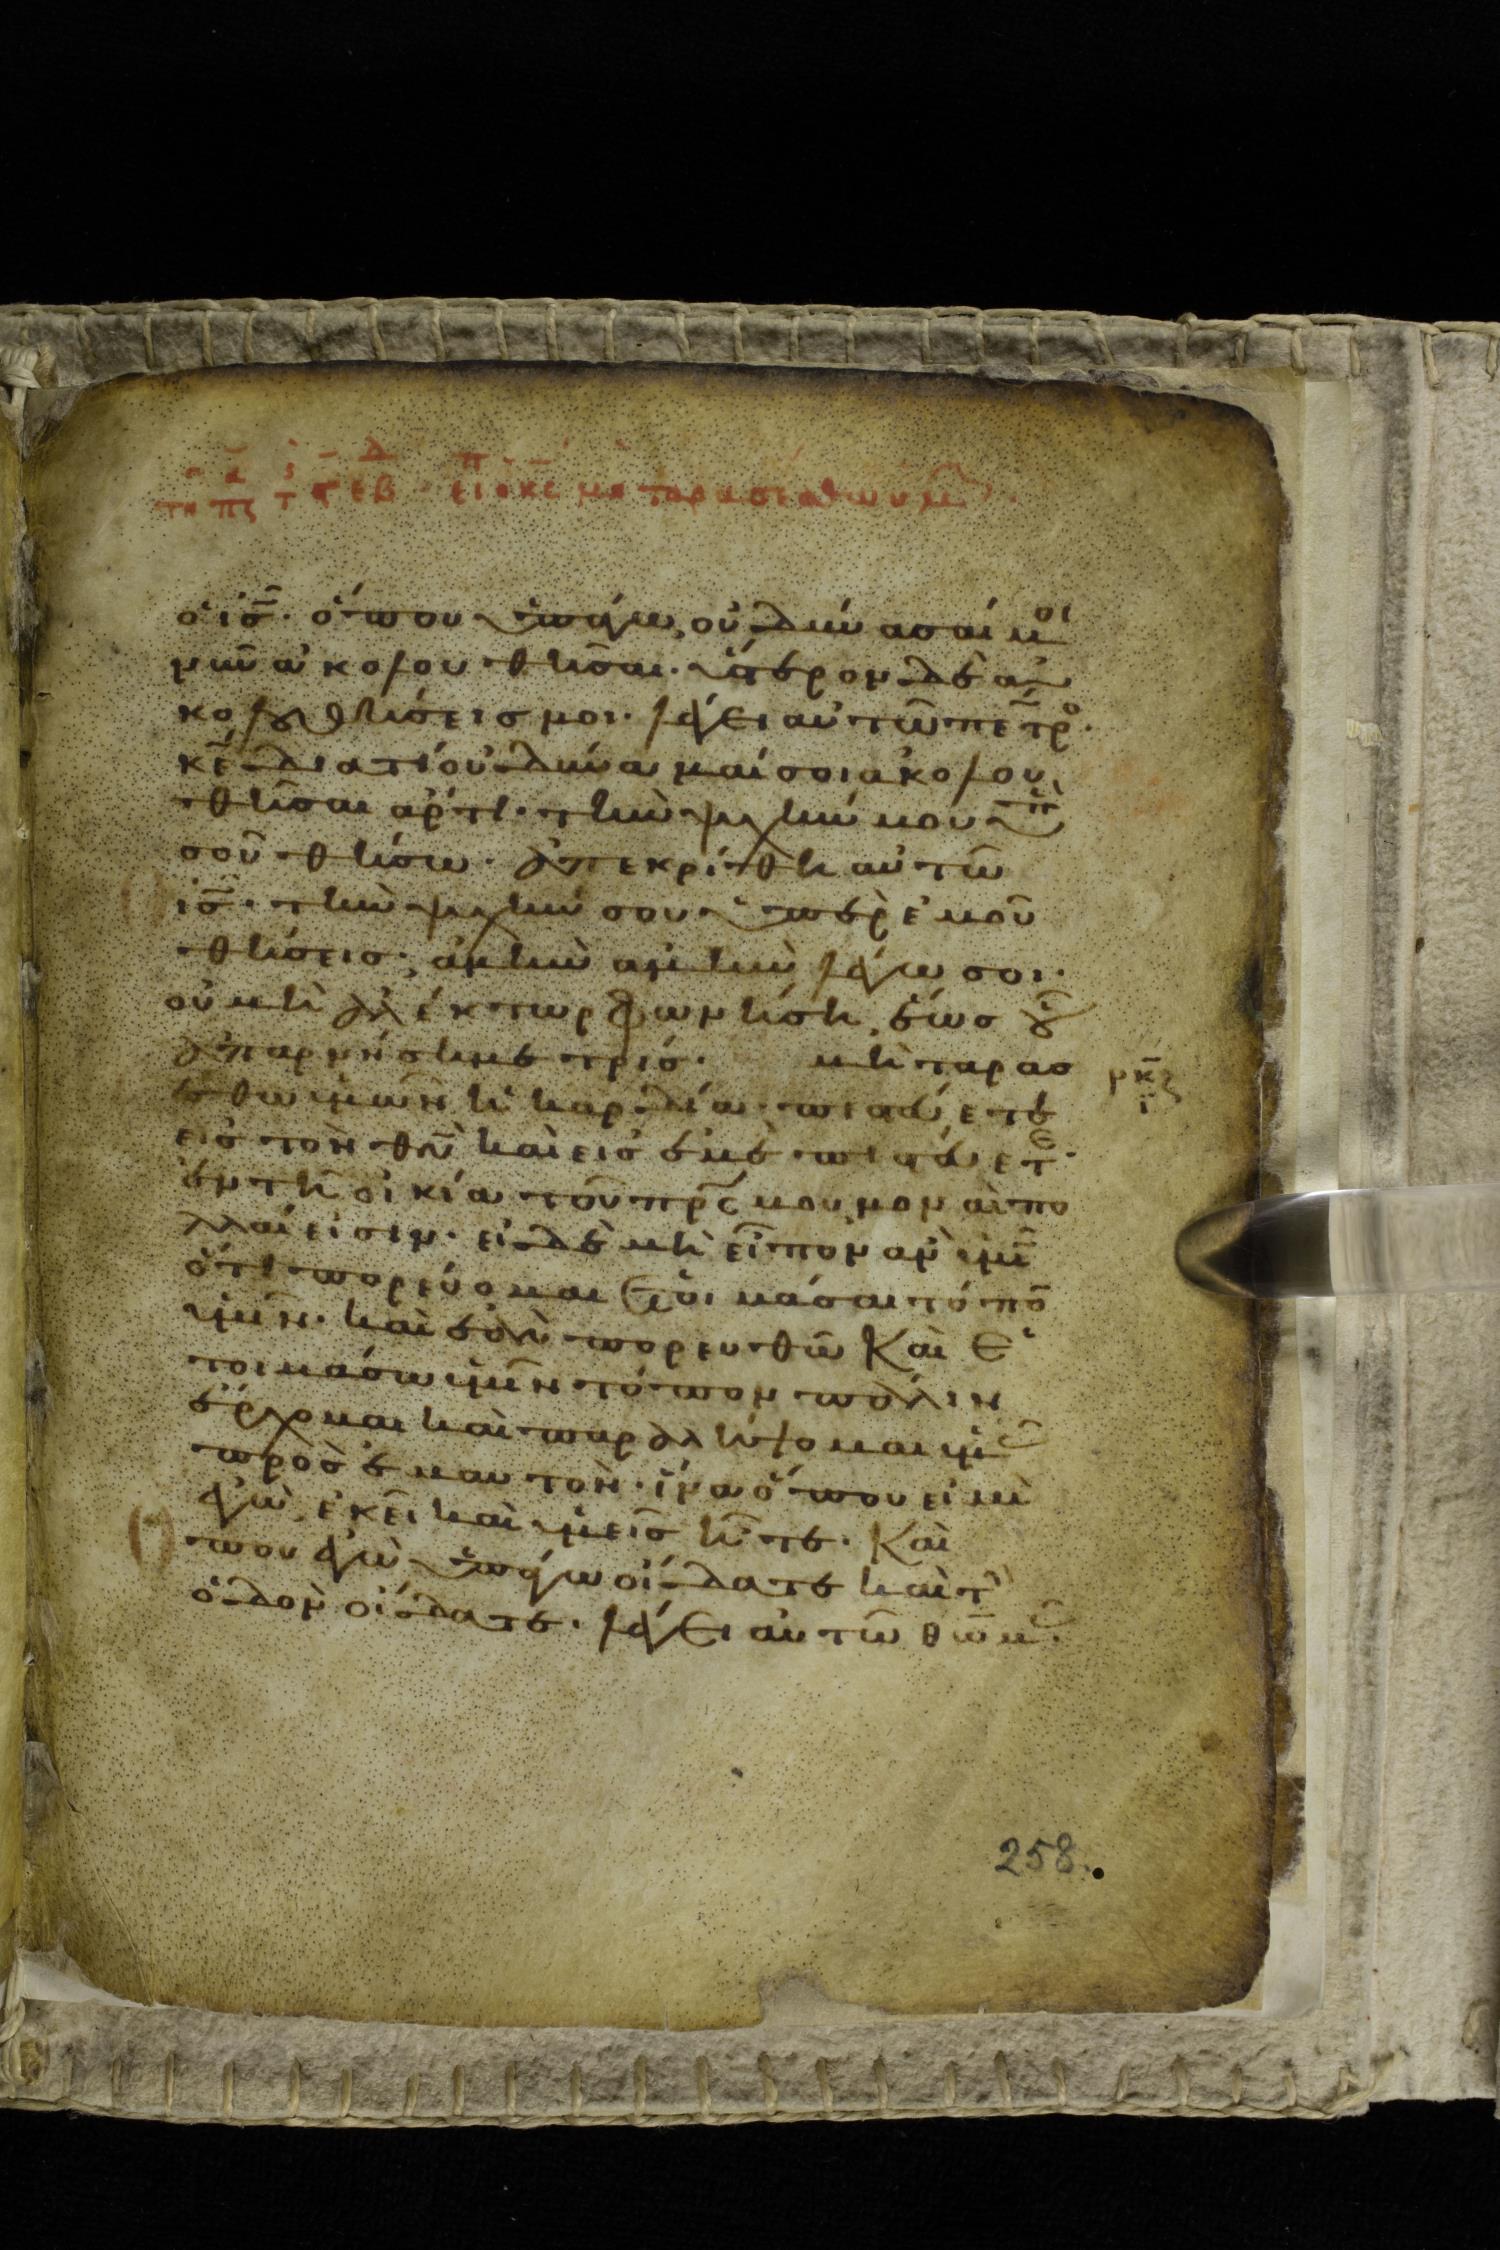 ὁ ις̅· ὅπου ὑπάγω, οὐ δύνασαί μοι
νῦν ἀκολουθῆσαι· ὕστερον δὲ ἀ
κολουθήσεις μοι· λέγει αὐτῶ πέτρο·
κε̅ διατί οὐ δύναμαί σοι ἀκολου
θῆσαι ἄρτι· τὴν ψυχήν μου ὑπὲρ
σοῦ θήσω· ἀπεκρίθη αὐτῶ
ις̅· τὴν ψυχήν σου ὑπὲρ ἐμοῦ
θήσεις· ἀμὴν ἀμὴν λέγω σοι·
οὐ μὴ ἀλέκτωρ φωνήση, ἕως οὗ
ἀπαρνήση με τρίς· μὴ ταρασ
σέσθω ὑμῶν ἡ καρδία· πιστεύετε
εἰς τὸν θν̅ καὶ εἰς ἐμὲ πιστεύετε·
ἐν τῆ οἰκία τοῦ πρς̅ μου μοναὶ πο
λλαί εἰσιν· εἰ δὲ μὴ εἶπον ἂν ὑμῖ
ὅτι πορεύομαι ἑτοιμάσαι τόπο
ὑμῖν· καὶ ἐὰν πορευθῶ καὶ ἑ
τοιμάσω ὑμῖν τόπον πάλιν
ἔρχομαι καὶ παραλήψομαι ὑμᾶς
πρὸς ἐμαυτόν· ἵνα ὅπου εἰμὶ
ἐγὼ, ἐκεῖ καὶ ὑμεῖς ἦτε· Καὶ
ὅπου ἐγὼ ὑπάγω οἴδατε καὶ τὴ
ὁδὸν οἴδατε· λέγει αὐτῶ θωμᾶς·
258